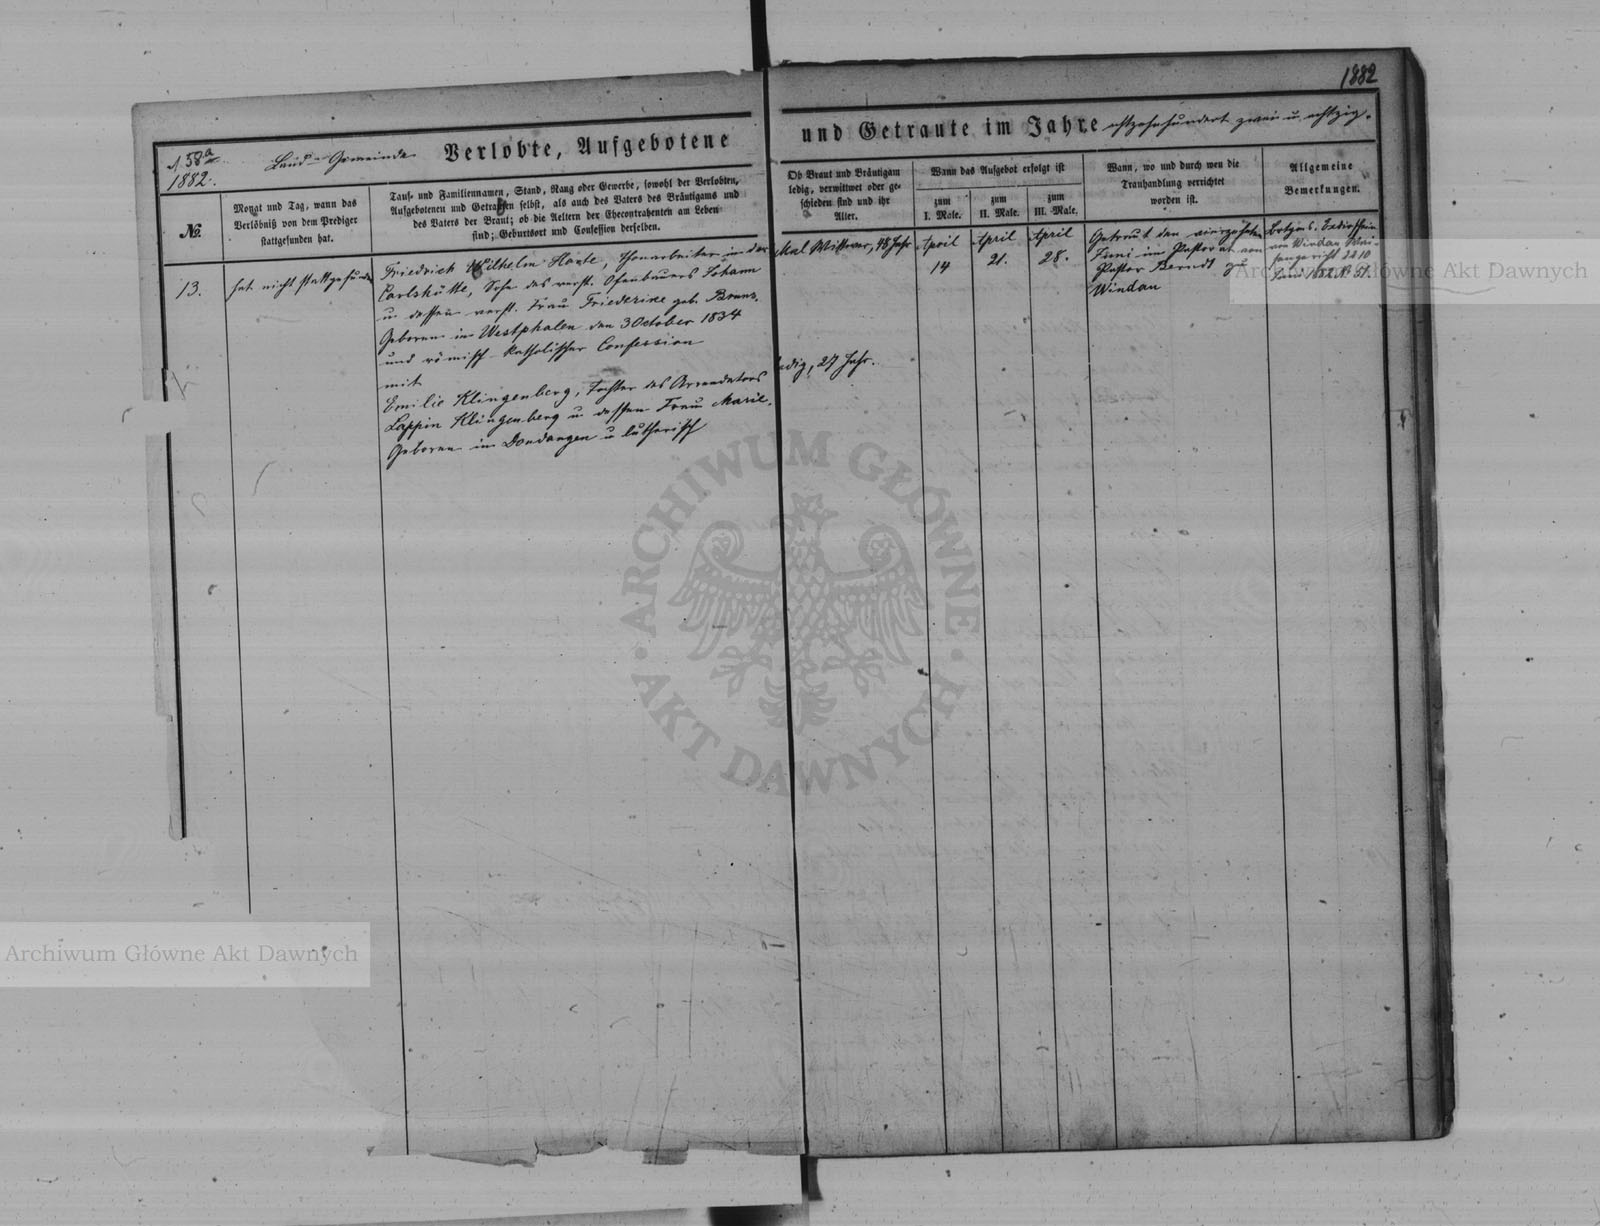 1882
№ 58a
1882.
Land-Gemeinde
Verlobte, Aufgebotene
und Getraute im Jahre achtzehnhundert zwei u. achtzig.
№.
Monat und Tag, wann das
Verlöbniß von dem Prediger
stattgefunden hat.
Tauf- und Familiennamen, Stand, Rang oder Gewerbe, sowohl der Verlobten,
Aufgebotenen und Getrauten selbst, als auch des Vaters des Bräutigams und
des Vaters der Braut; ob die Aeltern der Ehecontrahenten am Leben
sind; Geburtsort und Confession derselben.
Ob Braut und Bräutigam
ledig, verwittwet oder ge-
schieden sind und ihr
Alter.
Wann das Aufgebot erfolgt ist
zum
I. Male.
zum
II. Male.
zum
III. Male.
Wann, wo und durch wen die
Trauhandlung verrichtet
worden ist.
Allgemeine
Bemerkungen.
13.
hat nicht stattgefunden
Friedrich Wilhelm, Thonarbeiter in der
Carlshütte, Sohn des verst. Ofenbauers Johann
u. dessen verst. Frau Friederike geb. Bruns.
Geboren in Westphalen den 3 October 1834
und römisch-katholischer Confession
mit
Emilie Klingenberg, Tochter des Arrendators
Lappin Klingenberg u. dessen Frau Marie.
Geboren in Dondangen u. lutherisch
Mal Wittwer, 48 Jahr
edig, 27 Jahr.
April
14
April
21.
April
28.
Getraut den vierzehnten
Juni im Pastorat von
Pastor Berndt zu
Windau
von Windau
Archiwum Główne Akt Dawnych
ARCHIWUM GŁÓWNE
AKT DAWNYCH
Archiwum Główne Akt Dawnych